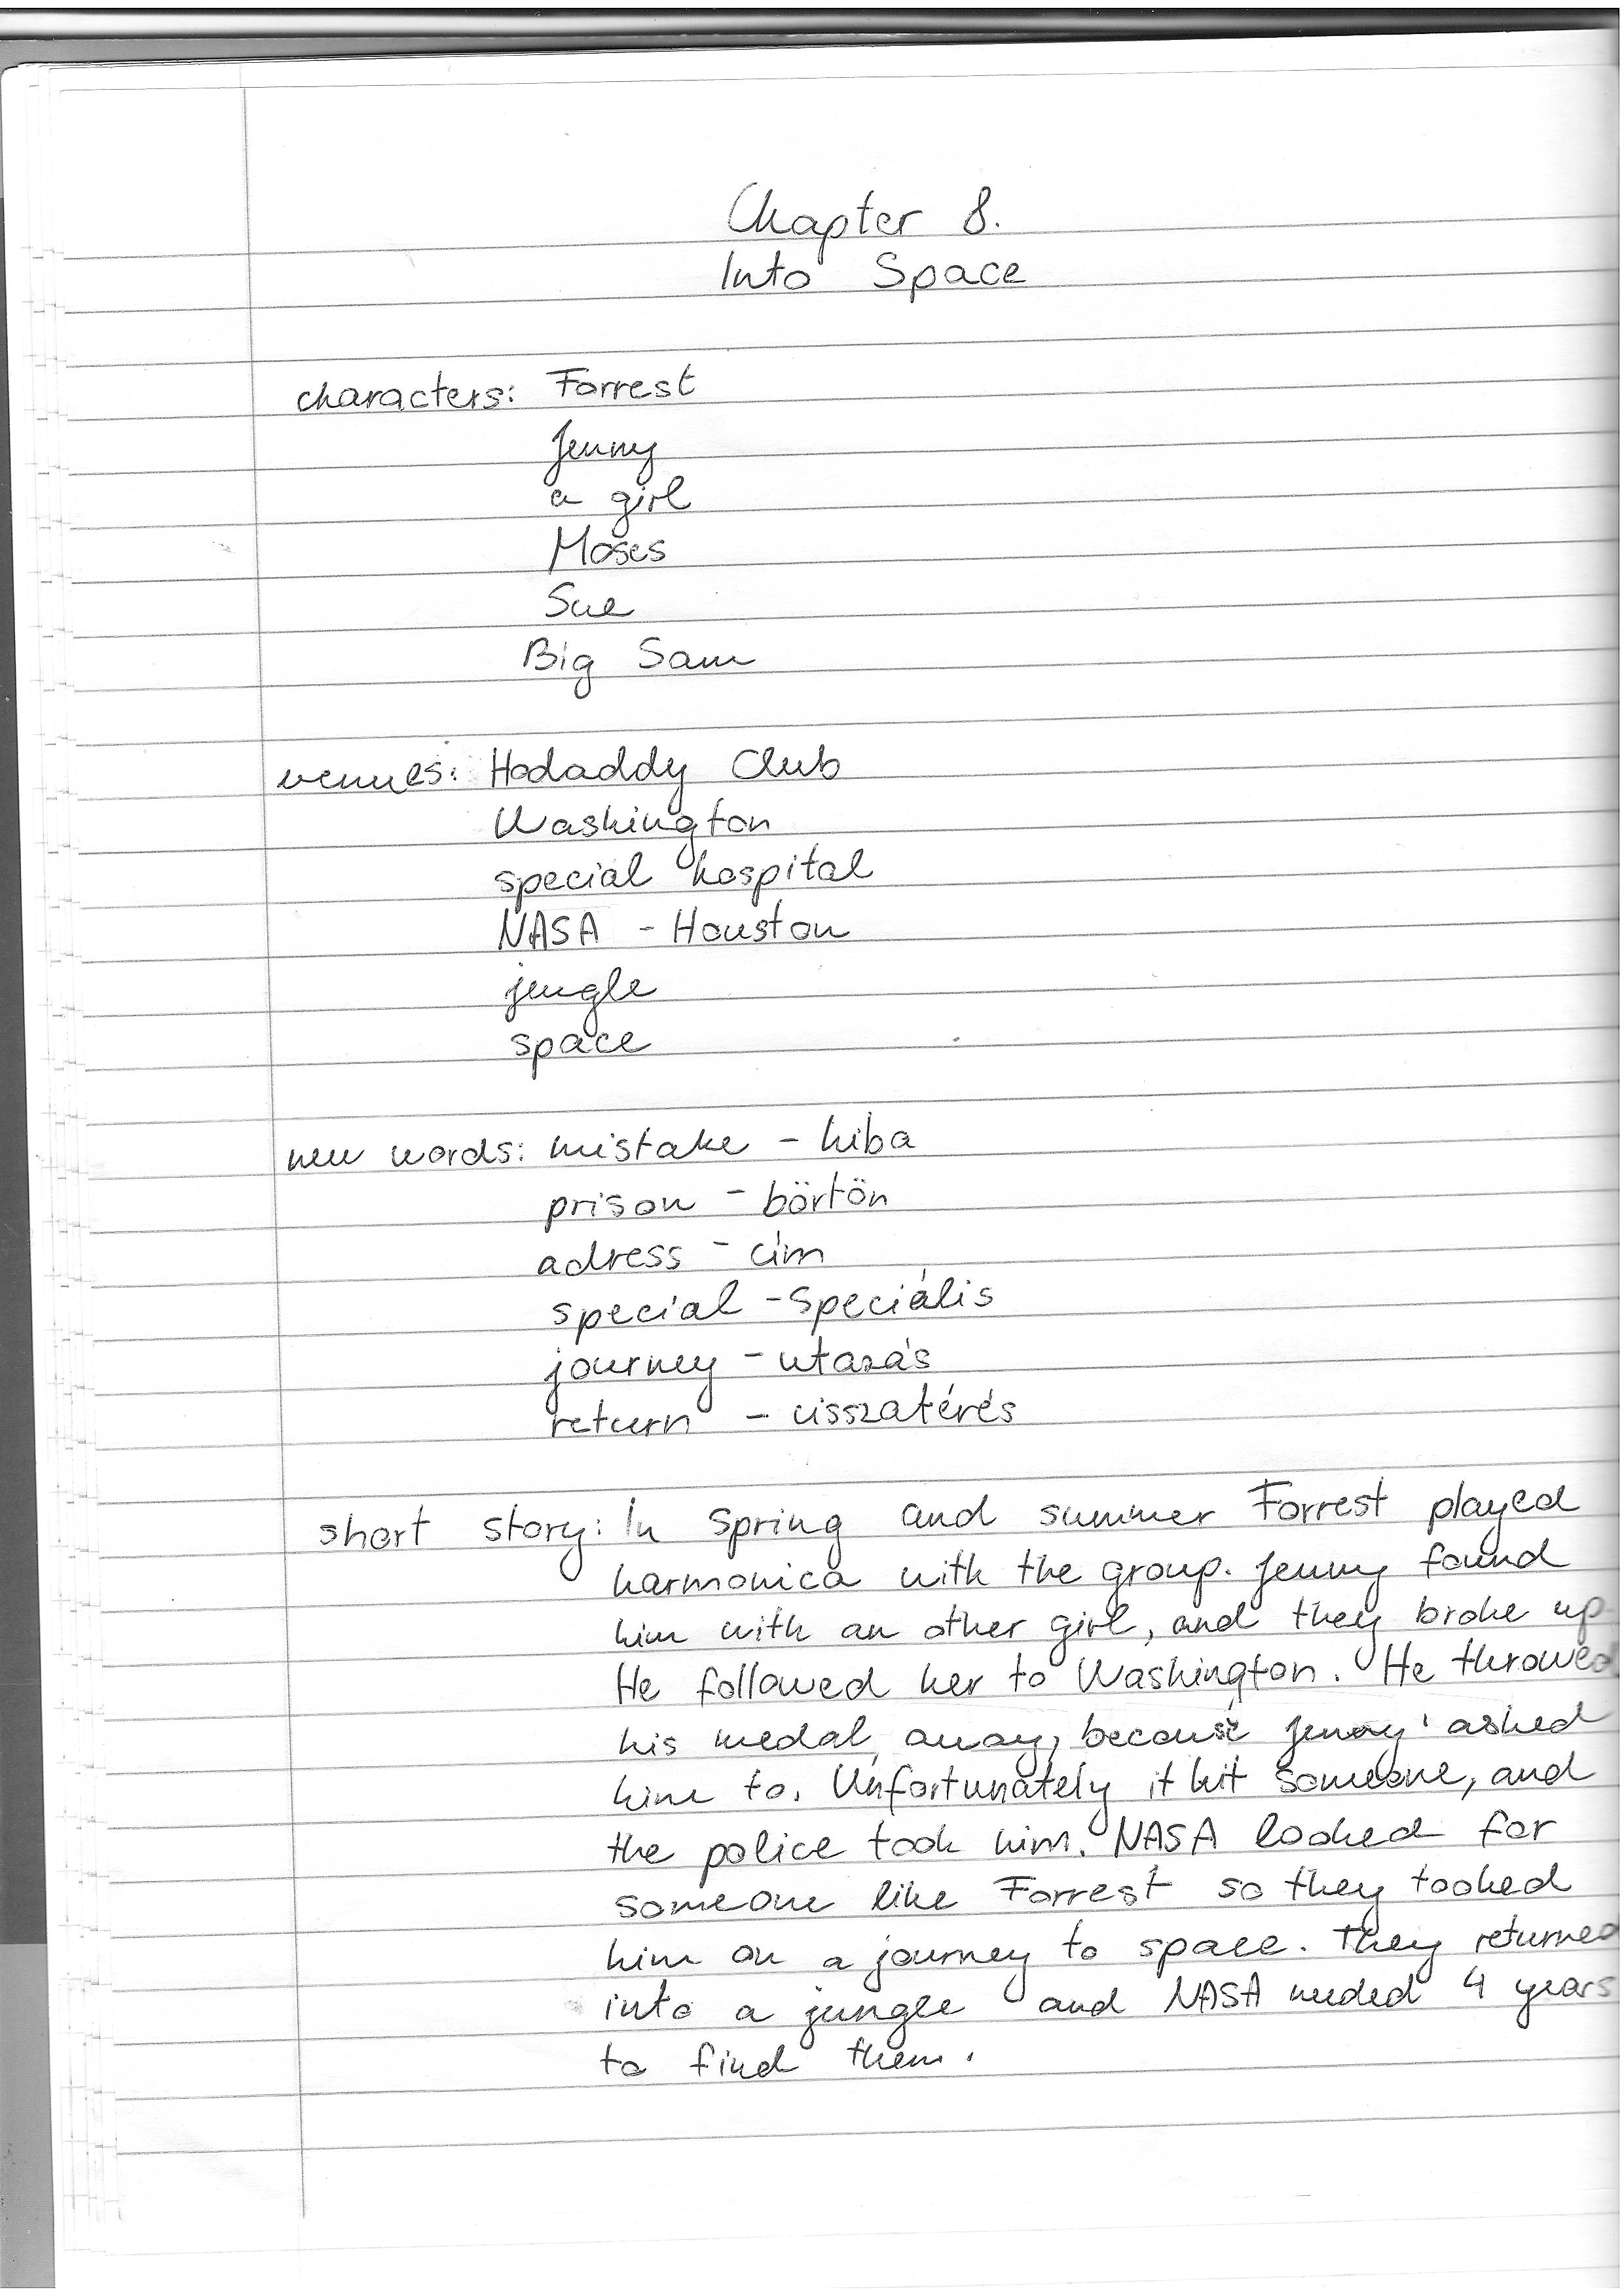 Chapter 8.
Into Space
characters: Forrest
Jenny
a girl
Moses
Sue
Big Sam
venues: Hodaddy Club
Washington
special hospital
NASA - Houston
jungle
space
new words: mistake - hiba
prison - börtön
adress - cím
special - speciális
journey - utazás
return - visszatérés
short story: In Spring and summer Forrest played
harmonica with the group. Jenny found
him with an other girl, and they broke up.
He followed her to Washington. He throwed
his medal away, because Jenny asked
him to. Unfortunately it hit someone, and
the police took him. NASA looked for
someone like Forrest so they tooked
him on a journey to space. They returned
into a jungle and NASA needed 4 years
to find them.